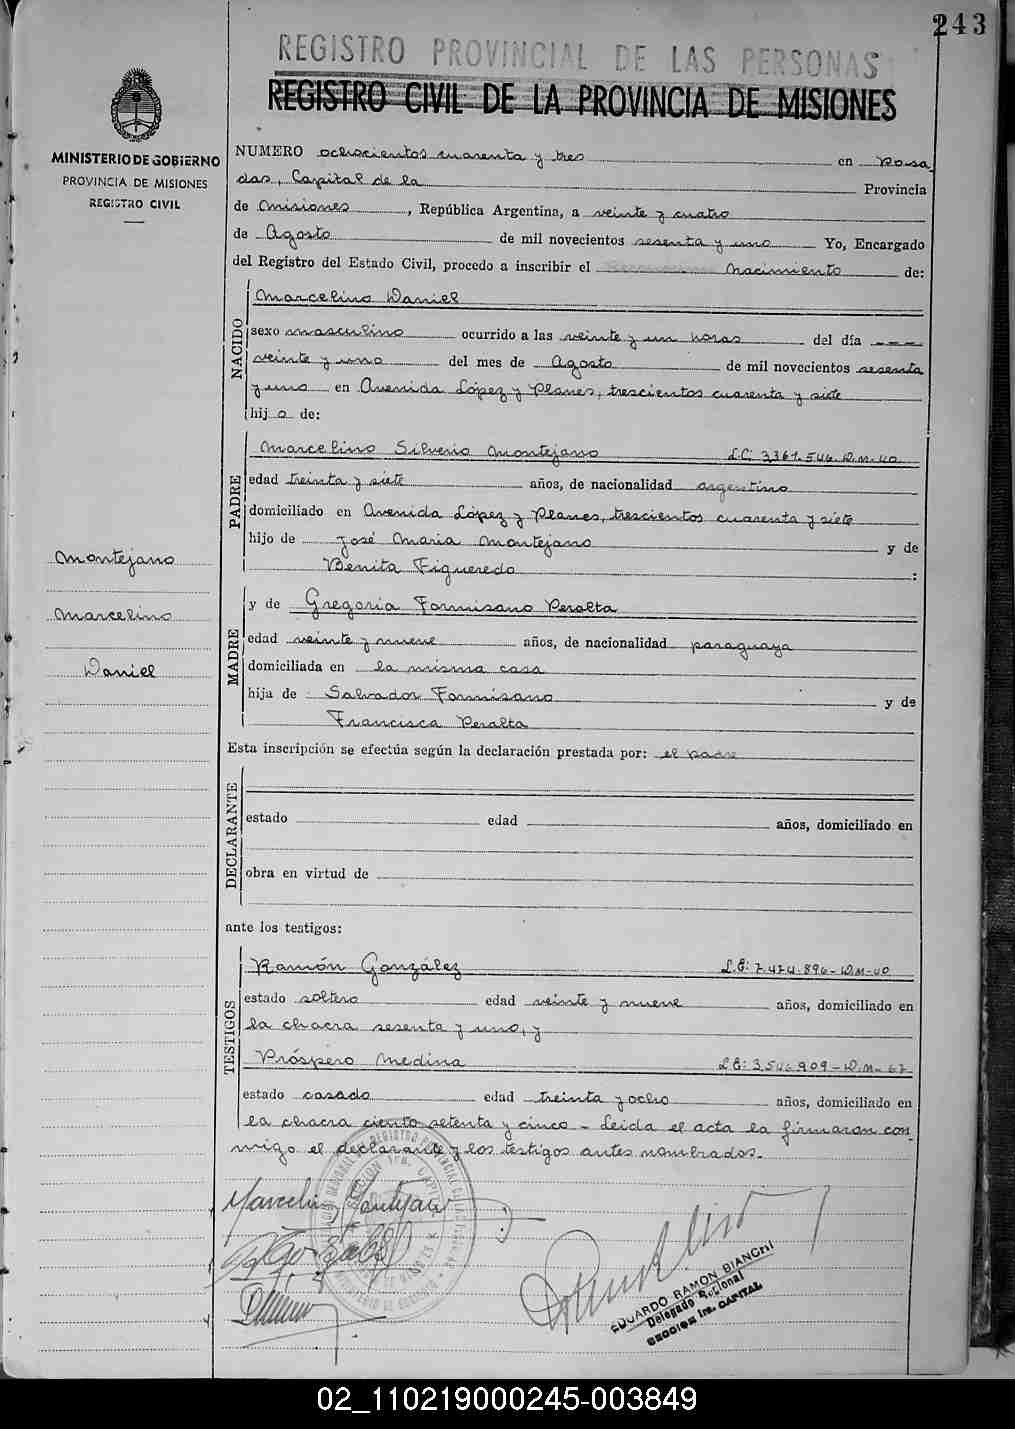 243
REGISTRO PROVINCIAL DE LAS PERSONAS
REGISTRO CIVIL DE LA PROVINCIA DE MISIONES
MINISTERIO DE GOBIERNO
PROVINCIA DE MISIONES
REGISTRO CIVIL
NUMERO ochocientos cuarenta y tres en Posa
das, Capital de la Provincia
de Misiones, República Argentina, a veinte y cuatro
de Agosto de mil novecientos sesenta y uno Yo, Encargado
del Registro del Estado Civil, procedo a inscribir el nacimiento de:
NACIDO
Marcelino Daniel
sexo masculino ocurrido a las veinte y un horas del día ---
veinte y uno del mes de Agosto de mil novecientos sesenta
y uno en Avenida López y Planes, trescientos cuarenta y siete
hijo de:
PADRE
Marcelino Silverio Montejano L.C: 3.361.546. D.M. 40
edad treinta y siete años, de nacionalidad argentino
domiciliado en Avenida López y Planes, trescientos cuarenta y siete
hijo de José Maria Montejano y de
Benita Figueredo :
Montejano
Marcelino
Daniel
MADRE
y de Gregoria Formisano Peralta
edad veinte y nueve años, de nacionalidad paraguaya
domiciliada en la misma casa
hija de Salvador Formisano y de
Francisca Peralta
Esta inscripción se efectúa según la declaración prestada por: el padre
DECLARANTE
estado edad años, domiciliado en
obra en virtud de
ante los testigos:
TESTIGOS
Ramón González L.E: 7.474.896 - D.M-40
estado soltero edad veinte y nueve años, domiciliado en
la chacra sesenta y uno, y
Próspero Medina L.E: 3.546.909 - D.M- 67
estado casado edad treinta y ocho años, domiciliado en
la chacra ciento setenta y cinco - Leida el acta la firmaron con
migo el declarante y los testigos antes nombrados.-
EDUARDO RAMON BIANCHI
Delegado Regional
SECCION 1ra. CAPITAL
02_110219000245-003849